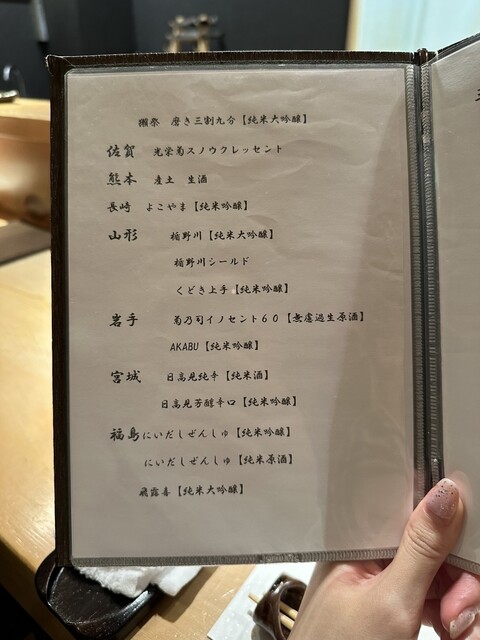 獺祭 磨き三割九分【純米大吟醸】
佐賀 光栄菊スノウクレッセント
熊本 産土 生酒
長崎 よこやま【純米吟醸】
山形 楯野川【純米大吟醸】
楯野川シールド
くどき上手【純米吟醸】
岩手 菊乃司イノセント60【無慮過生原酒】
AKABU【純米吟醸】
宮城 日高見純辛【純米酒】
日高見芳醇辛口【純米吟醸】
福島 にいだしぜんしゅ【純米吟醸】
にいだしぜんしゅ【純米原酒】
飛露喜【純米大吟醸】